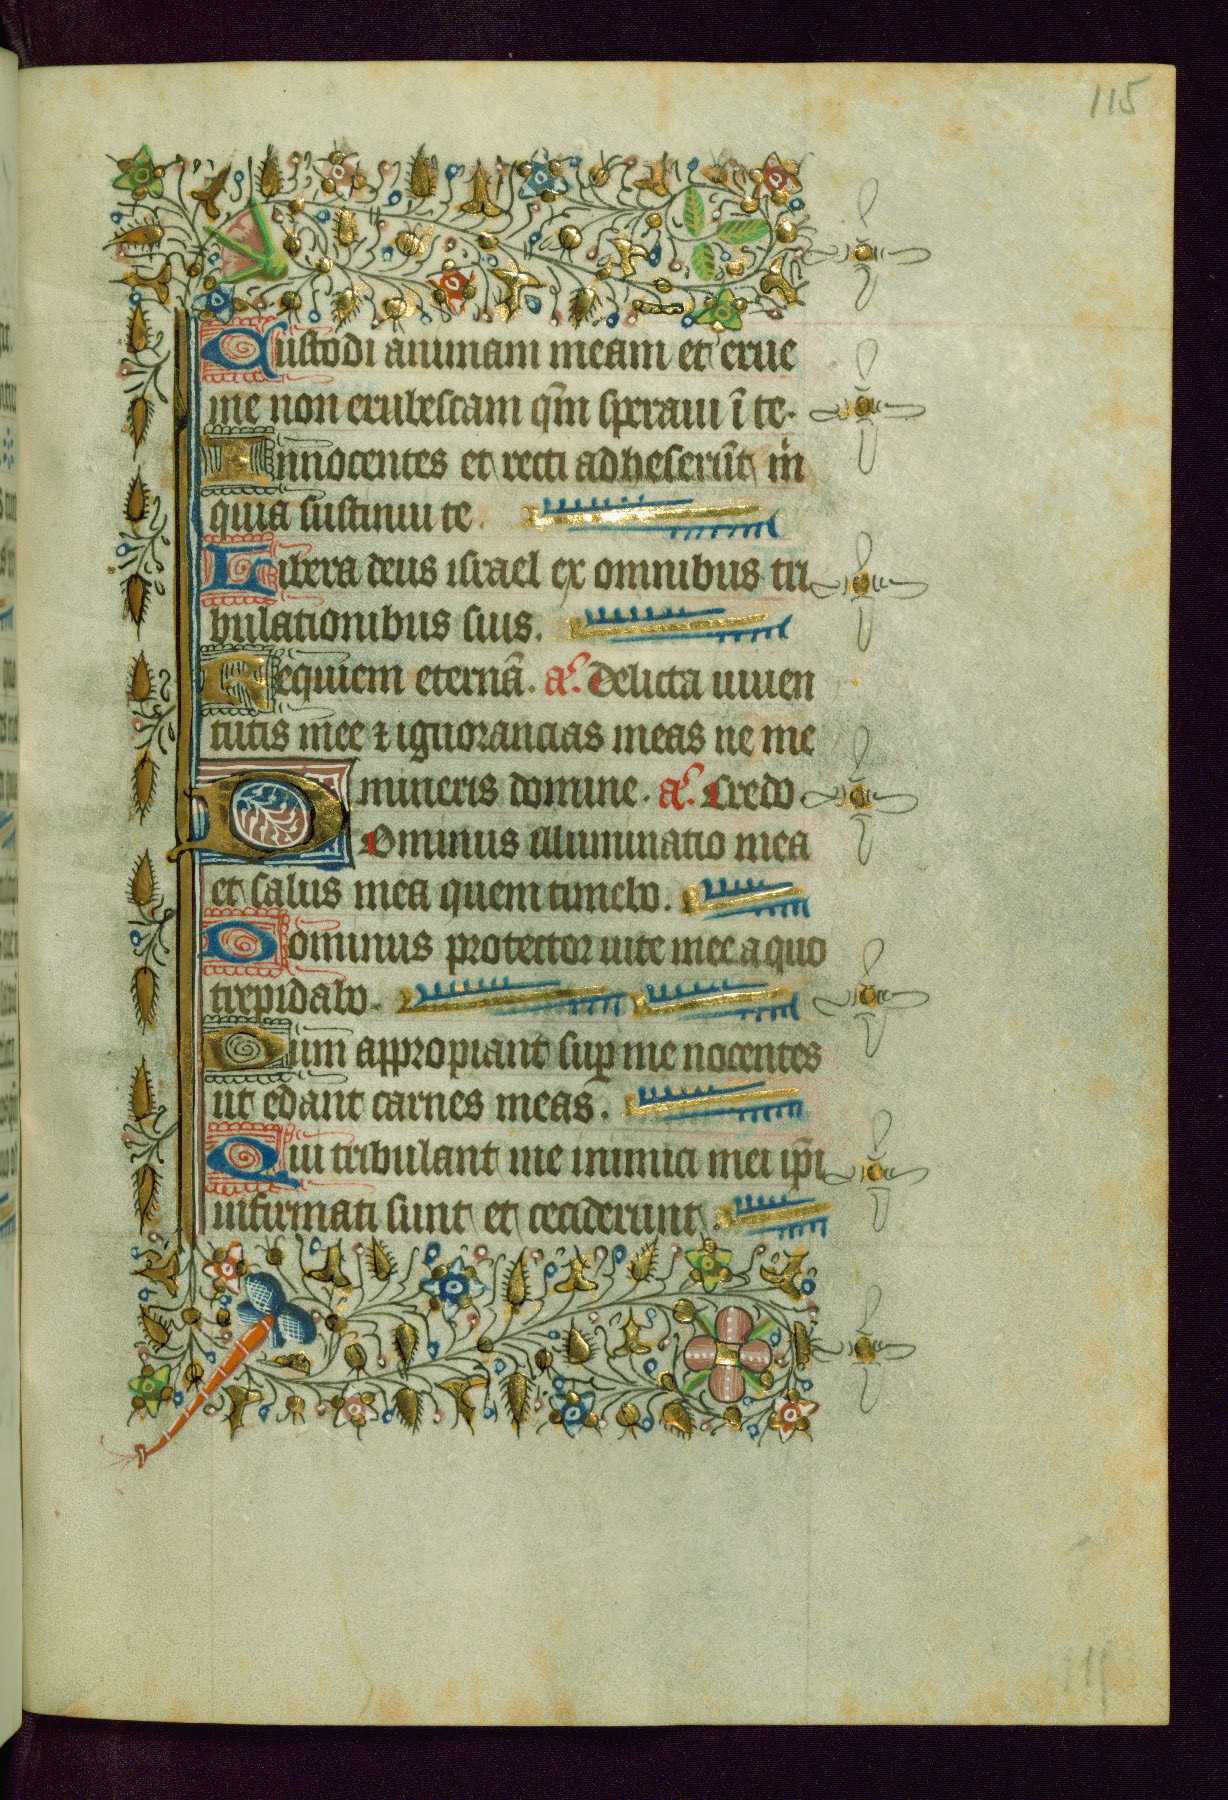 115
Custodi animam meam et erue
me non erubescam qm̄ speraui ī te.
Innocentes et recti adheserūt m̄
quia sustinui te.
Libera deus israel ex omnibus tri
bulationibus suis.
Requiem eternā. a͛. Delicta iuuen
tutis mee ⁊ ignorancias meas ne me
mineris domine. a͛. Credo.
Dominus illuminatio mea
et salus mea quem timebo.
Dominus protector uite mee a quo
trepidabo.
Dum appropiant sup̄ me nocentes
ut edant carnes meas.
Qui tribulant me inimici mei ip̄i
infirmati sunt et ceciderunt.